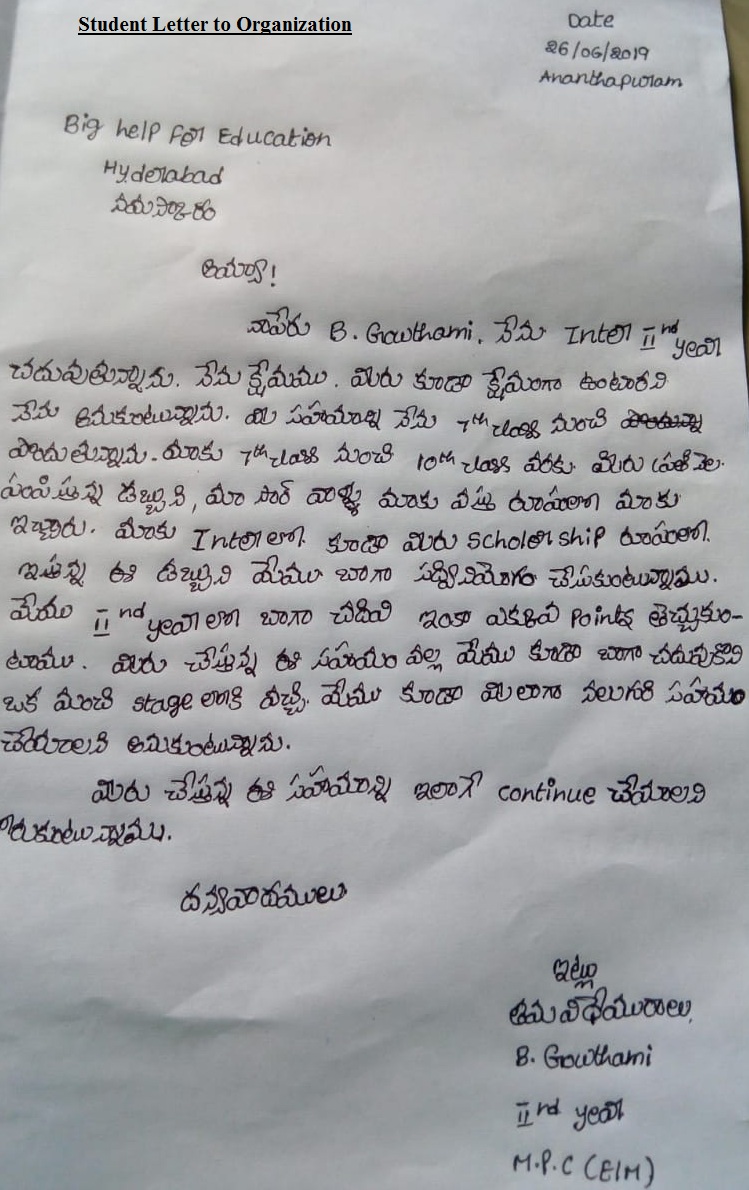 Student Letter to Organization
Date
26/06/2019
Ananthapuram
Big help For Education
Hyderabad
అయ్యా!
నాపేరు B. Gowthami. నేను Inter II nd year
చదువుతున్నాను. నేను క్షేమము. మీరు కూడా క్షేమంగా ఉంటారని
నేను అనుకుంటున్నాను. మీ సహాయాన్ని నేను 7th class నుంచి
పొందుతున్నాను. మాకు 7th class నుంచి 10th class వరకు మీరు ప్రతి నెల
పంపిస్తున్న డబ్బుని, మా సార్ వాళ్ళు మాకు వస్తు రూపంలో మాకు
ఇచ్చారు. మాకు Inter లో కూడా మీరు Scholership రూపంలో
ఇస్తున్న ఈ డబ్బుని మేము బాగా సద్వినియోగం చేసుకుంటున్నాము.
మేము II nd year లో బాగా చదివి ఇంకా ఎక్కువ Points తెచ్చుకుం-
టాము. మీరు చేస్తున్న ఈ సహాయం వల్ల మేము కూడా బాగా చదువుకొని
ఒక మంచి stage లోకి వచ్చి మేము కూడా మీలాగా నలుగురికి సహాయం
చేయాలని అనుకుంటున్నాను.
మీరు చేస్తున్న ఈ సహాయాన్ని ఇలాగే continue చేయాలని
కోరుకుంటున్నాము.
దన్యవాదములు
ఇట్లు
తమ విధేయురాలు,
B. Gowthami
II nd year
M.P.C (E/M)